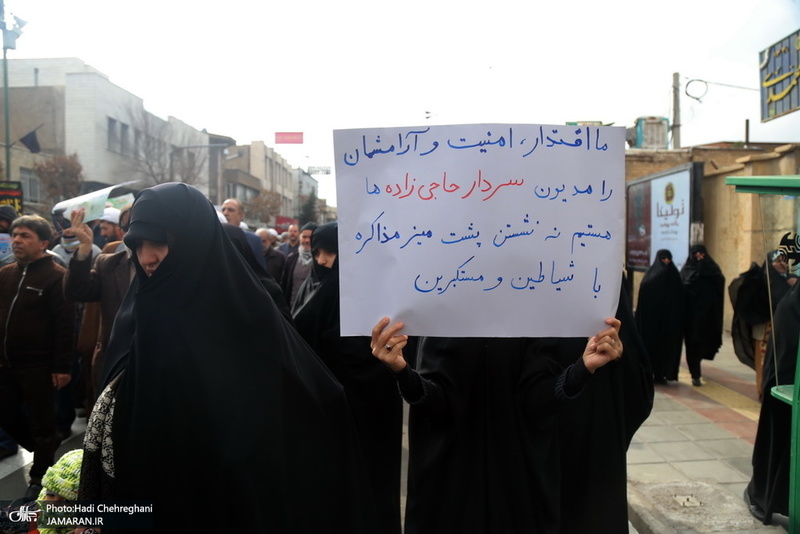 ما اقتدار، امنیت و آرامشمان
را مدیون سردار حاجی زاده ها
هستیم نه نشستن پشت میز مذاکره
با شیاطین و مستکبرین
Photo:Hadi Chehreghani
JAMARAN.IR